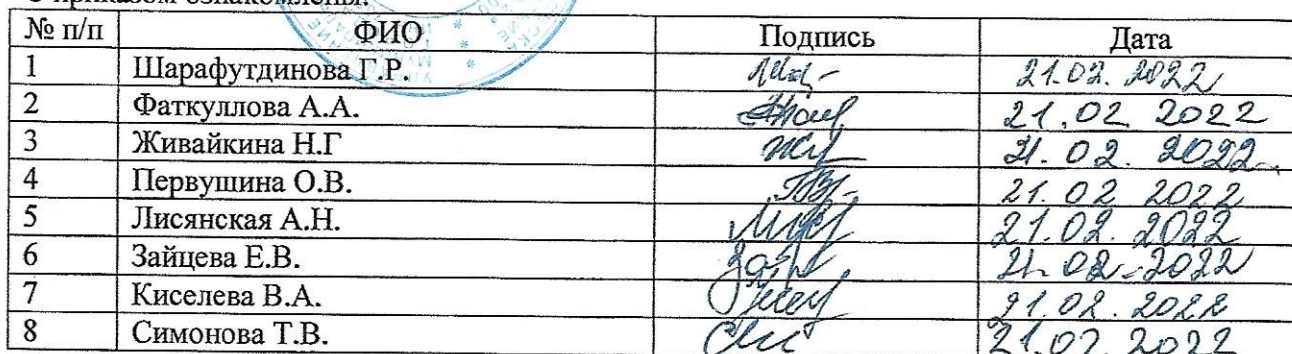 С приказом ознакомлены:
№ п/п ФИО Подпись Дата
1 Шарафутдинова Г.Р. 21.02.2022
2 Фаткуллова А.А. 21.02 2022
3 Живайкина Н.Г 21.02.2022
4 Первушина О.В. 21.02 2022
5 Лисянская А.Н. 21.02.2022
6 Зайцева Е.В. 21.02.2022
7 Киселева В.А. 21.02.2022
8 Симонова Т.В. 21.02.2022